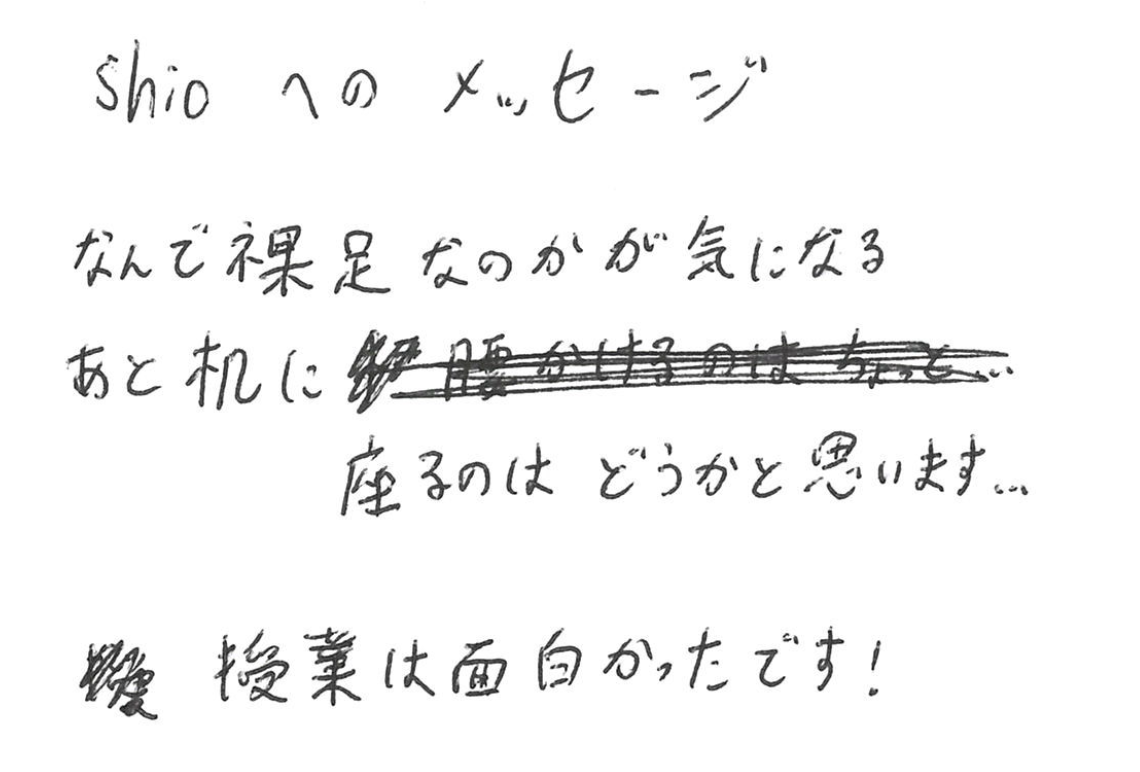 shio へのメッセージ
なんで裸足なのかが気になる
あと机に腰かけるのはちょっと...
座るのはどうかと思います...
授業は面白かったです!